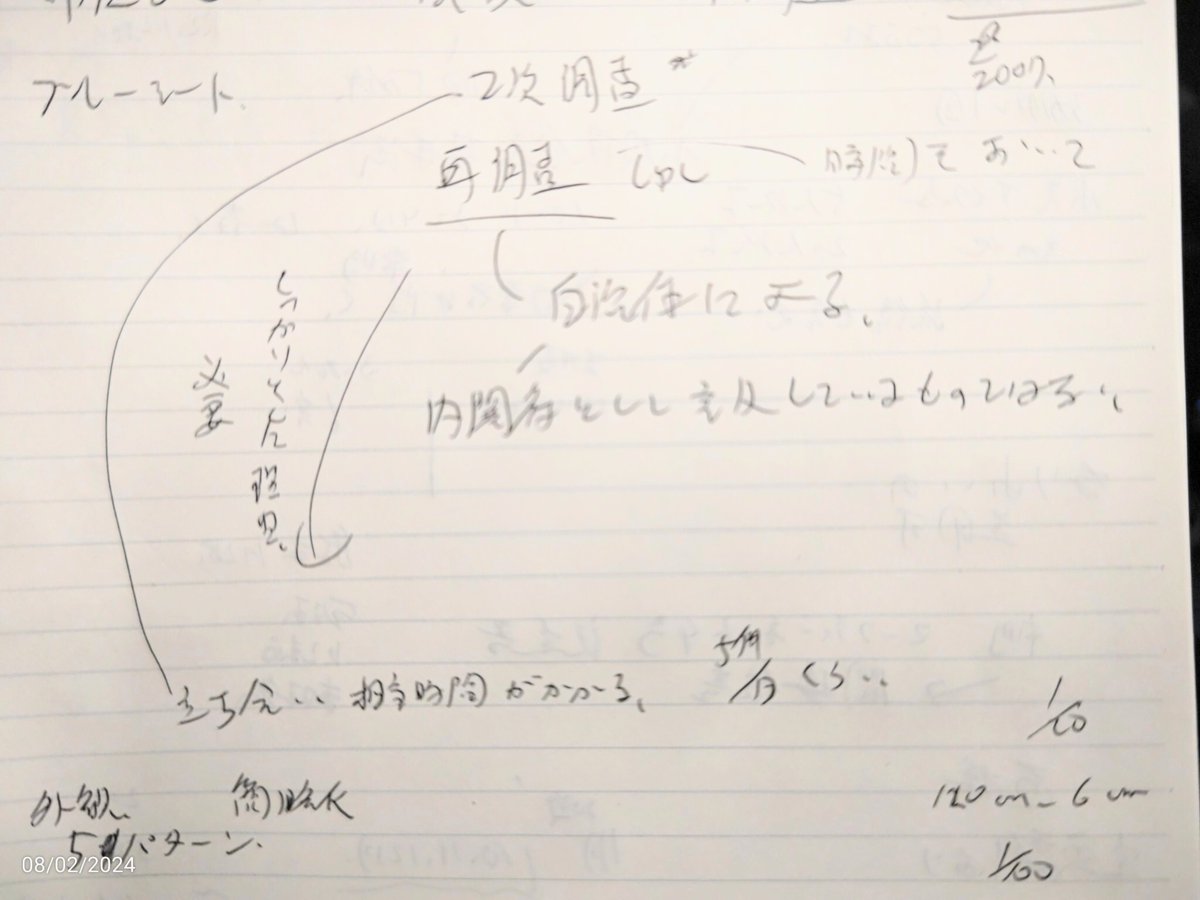 2007.
ブルーシート.
2次調査
再調査 しかし
をおいて
自治体による.
内閣府として言及しているものではない.
しっかりとした理由.
必要
立ち会い 相当時間がかかる.
5件/日 くらい
1/60
外観. 簡略化
120cm - 6cm
5パターン.
1/100
08/02/2024